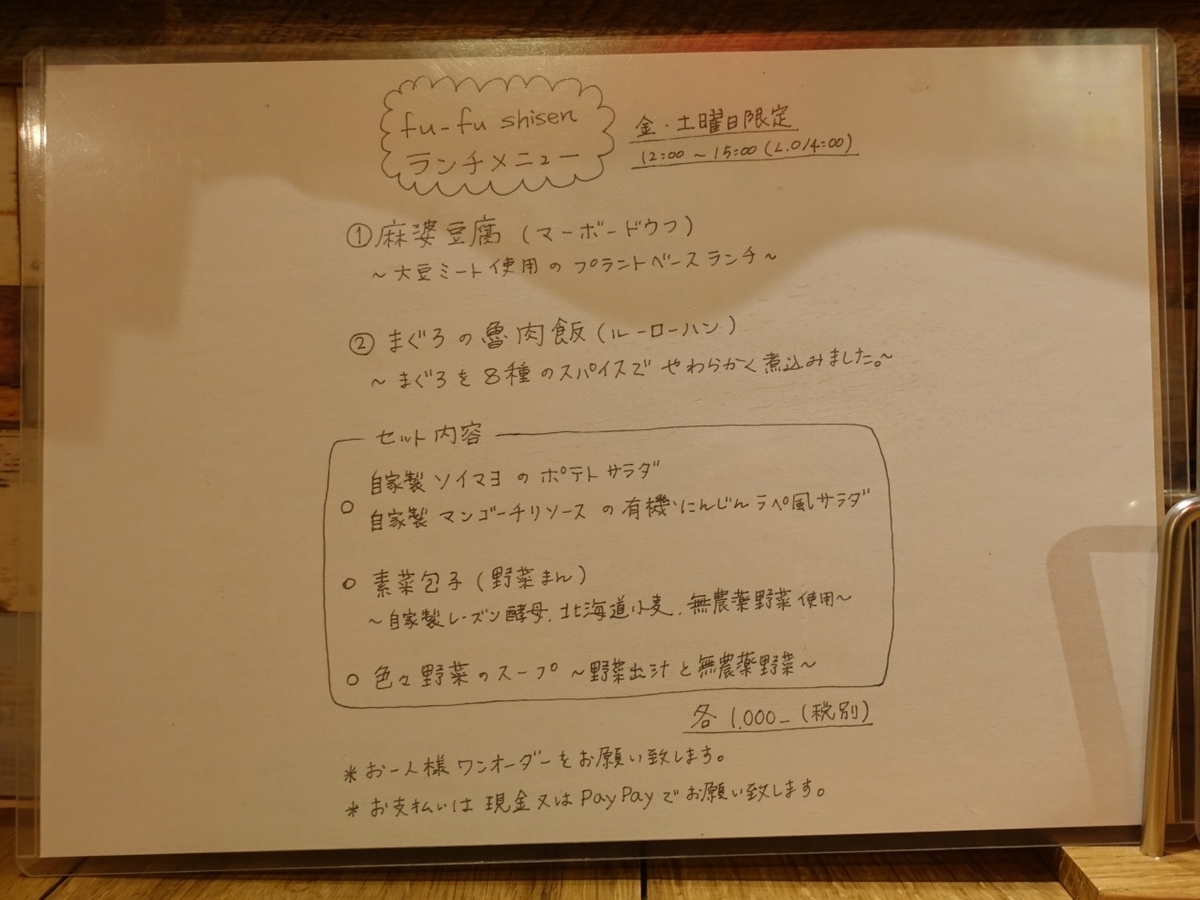 fu-fu shisen
ランチメニュー
金・土曜日限定
12:00 ~ 15:00 (L.O14:00)
①麻婆豆腐 (マーボードウフ)
~大豆ミート使用のプラントベースランチ~
② まぐろの魯肉飯 (ルーローハン)
~まぐろを8種のスパイスでやわらかく煮込みました。~
セット内容
○ 自家製ソイマヨのポテトサラダ
自家製マンゴーチリソースの有機にんじんラペ風サラダ
○ 素菜包子 (野菜まん)
~自家製レーズン酵母、北海道小麦、無農薬野菜使用~
○ 色々野菜のスープ ~野菜出汁と無農薬野菜~
各 1,000_ (税別)
*お一人様ワンオーダーをお願い致します。
*お支払いは現金又はPayPayでお願い致します。